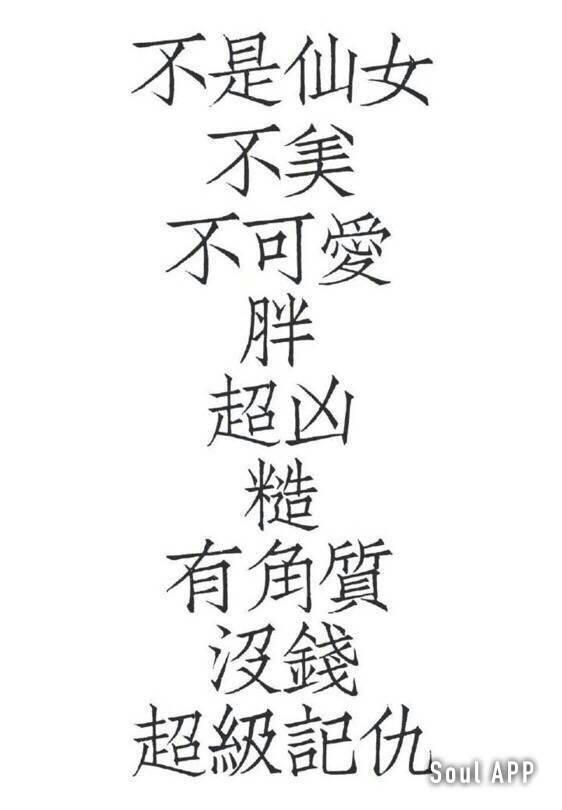 不是仙女
不美
不可愛
胖
超凶
糙
有角質
沒錢
超級記仇
Soul APP